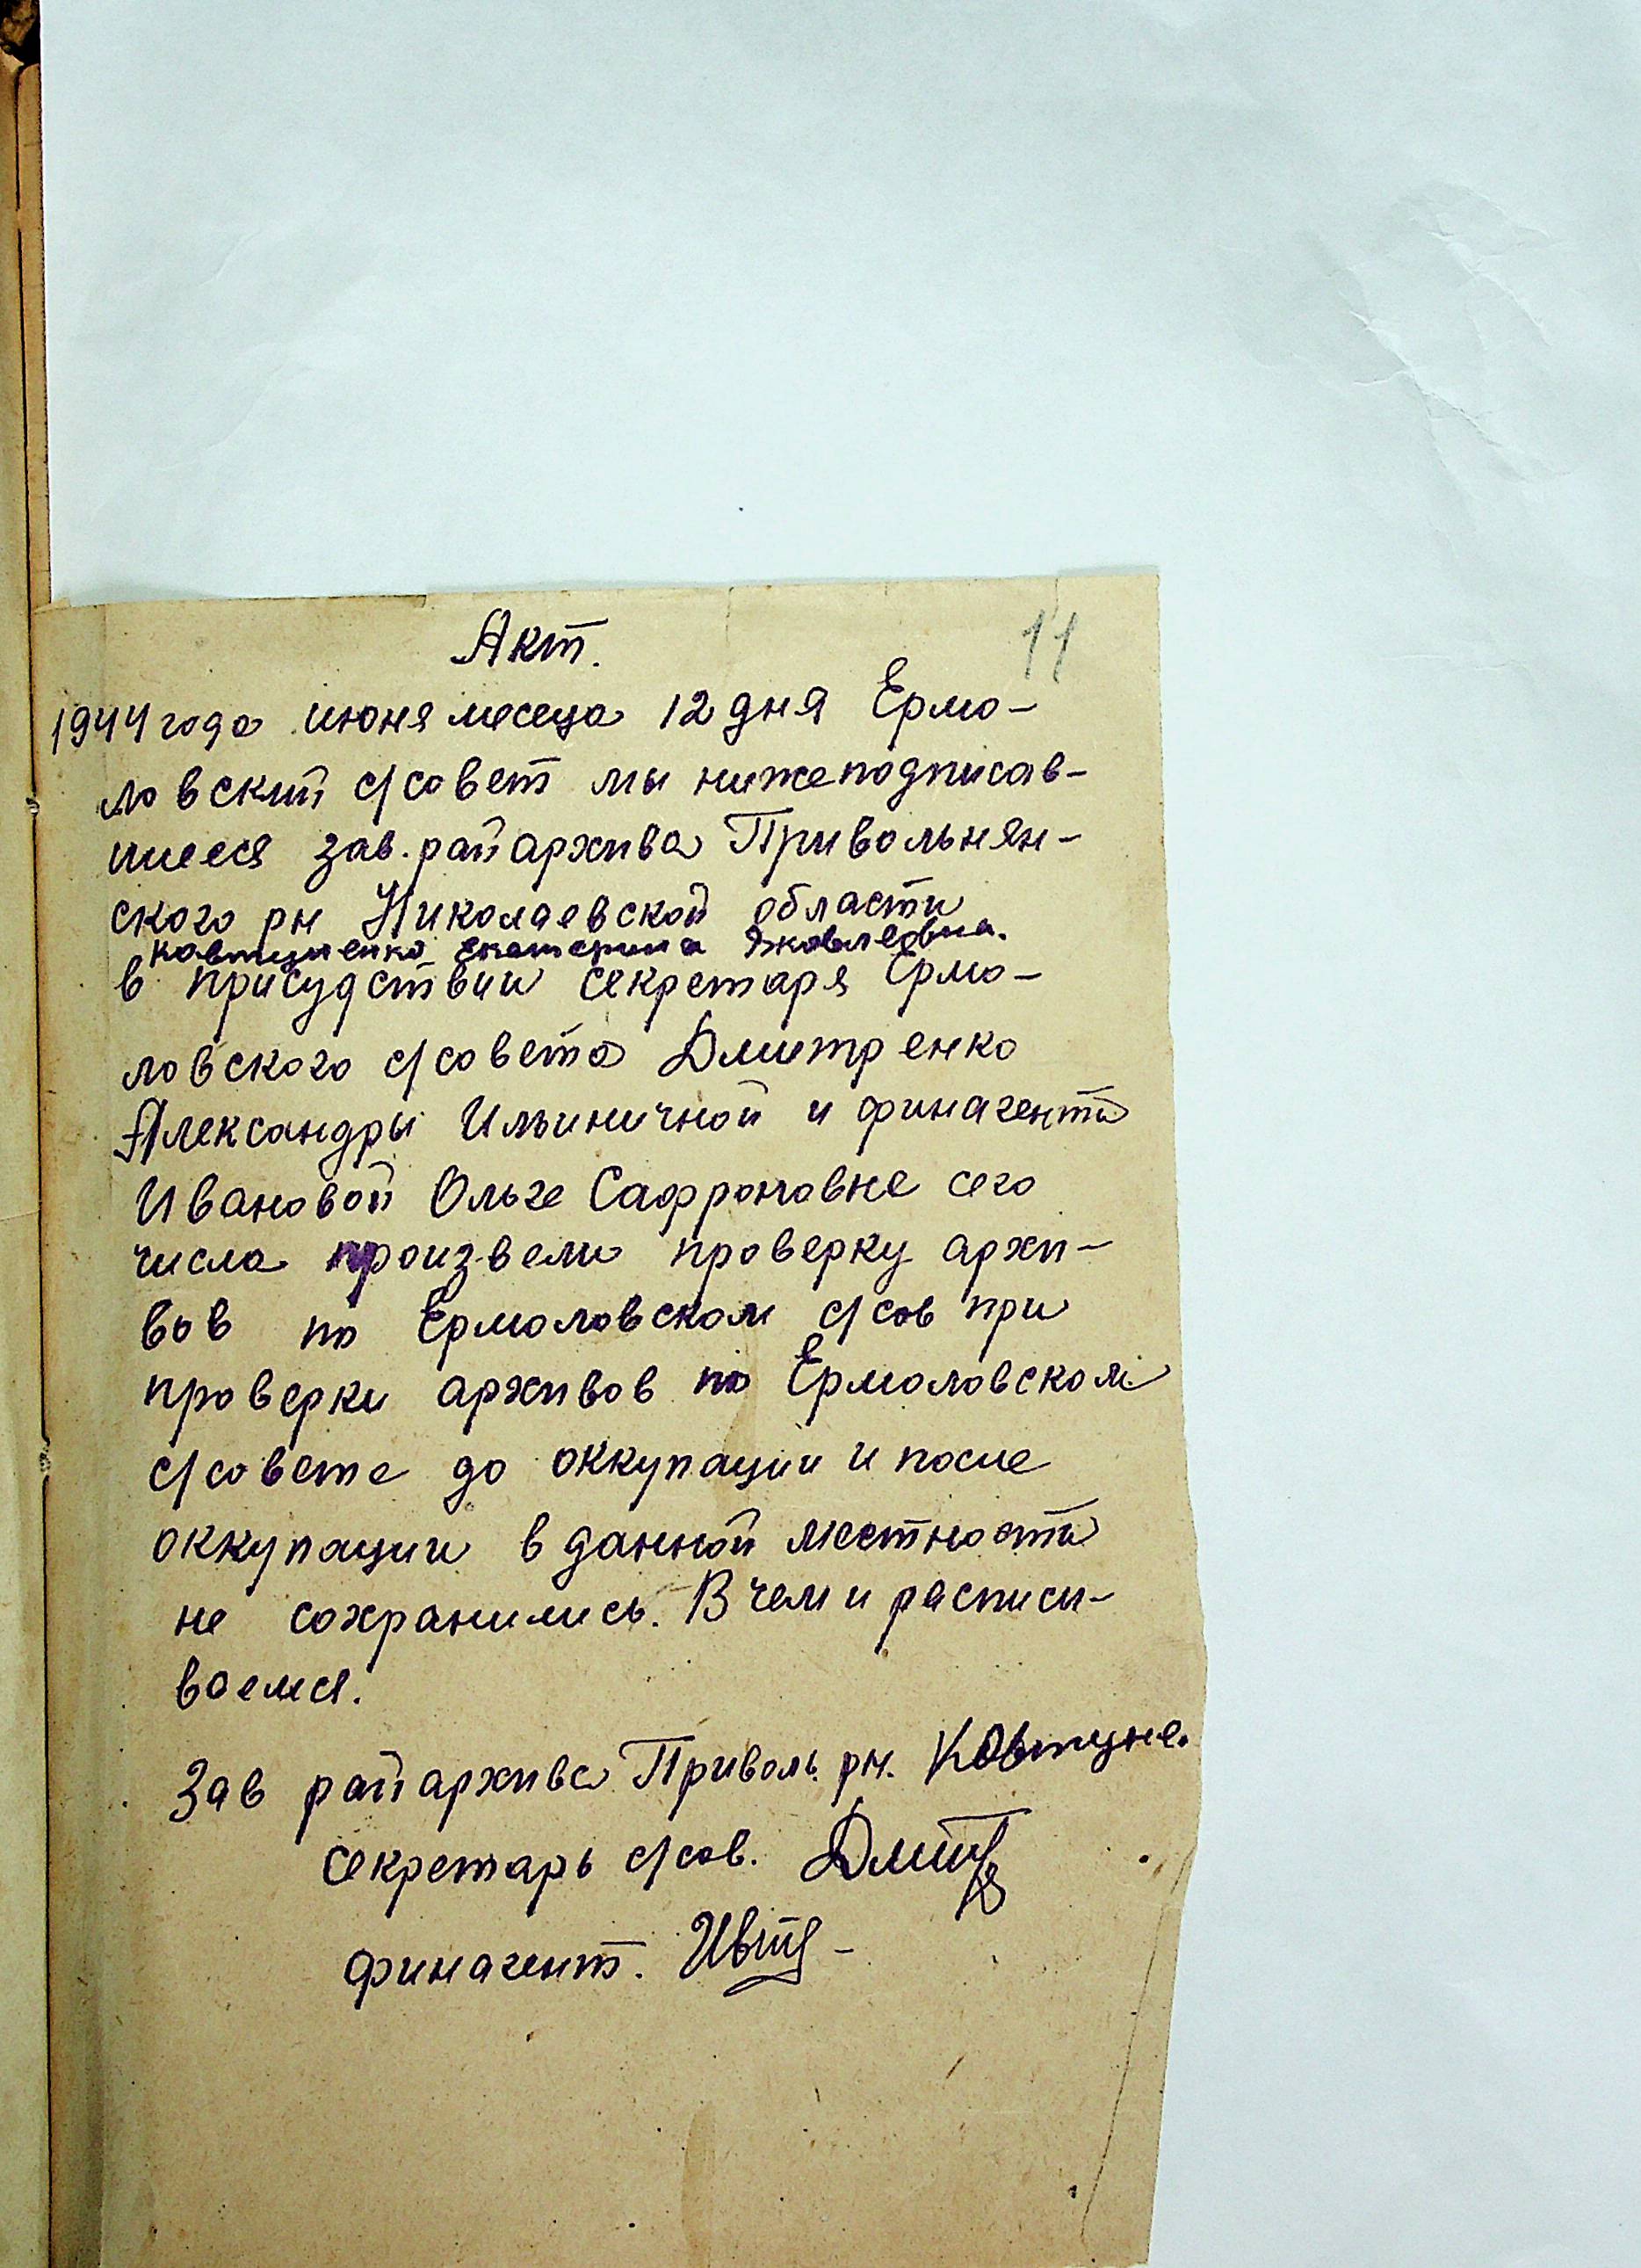 Акт.
11
1944 года июня месеца 12 дня Ермо-
ловский с/совет мы нижеподписав-
шиеся зав. райархива Привольнян-
ского рн Николаевской области
Ковтуненко Екатерина Яковлевна.
в присудствии секретаря Ермо-
ловского с/совета Дмитренко
Александры Ильиничной и финагента
Ивановой Ольге Сафроновне сего
числа произвели проверку архи-
вов по Ермоловском с/сов при
проверки архивов по Ермоловском
с/совете до оккупации и после
оккупации в данной местности
не сохранились. В чем и расписи-
ваемся.
Зав райархива Приволь. рн. Ковтуне.
секретарь с/сов.
финагент.